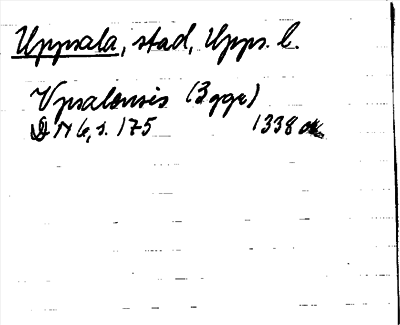 Uppsala, stad, Upps. l.
Vpsalensis (3 ggr)
DN 6, s. 175 1338